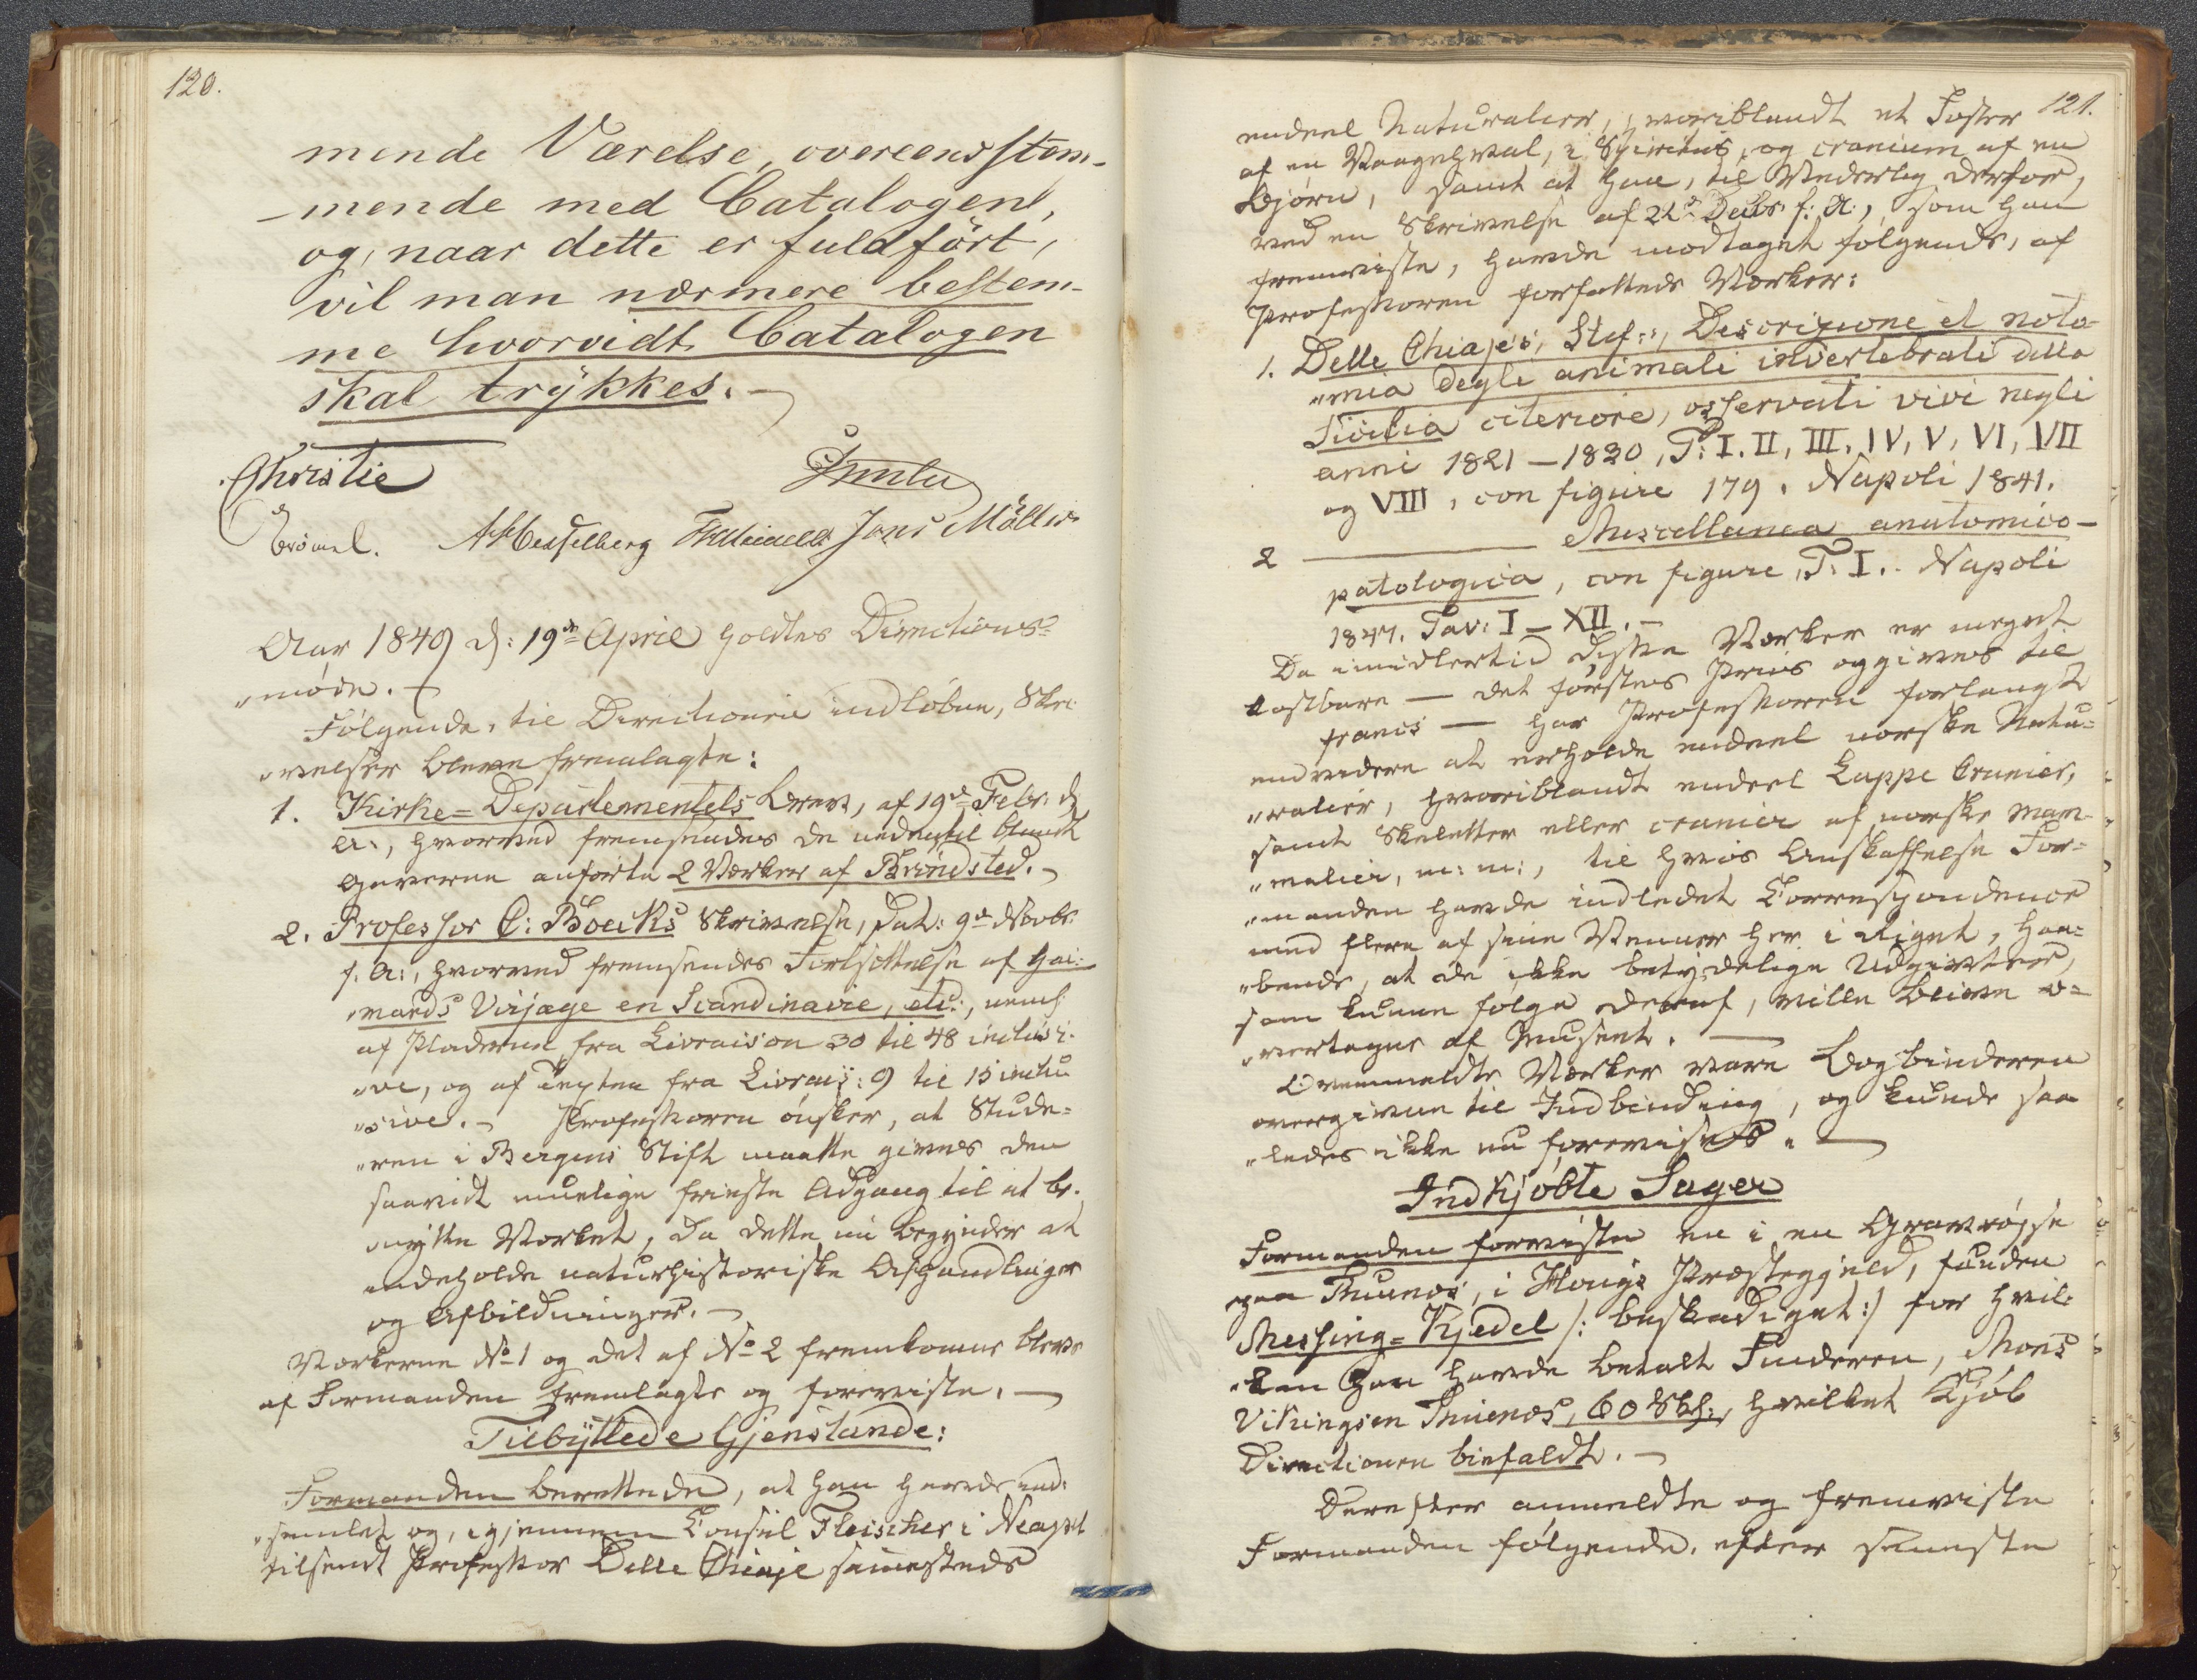 120.
mende Værelse, overeensstem-
-mende med Catalogen,
og, naar dette er fuldført,
vil man nærmere bestem-
me hvorvidt Catalogen
skal trykkes. -
Christie
Brömel. A Hesselberg Jens Møller
Aar 1849 d: 19de April holdtes Directions=
"møde. -
Følgende, til Directionen indløbne, Skri-
"velser bleve fremlagte:
1. Kirke=Departementets Brev, af 19de Febr. d.
A:, hvorved fremsendes de nedentil blandt
Gaverne anførte 2 Værker af Bröndsted. -
2. Professor C: Boecks Skrivelse, dat: 9de Novbr.
f. A:, hvorved fremsendes Fortsættelse af Gai-
"mards Voijage en Scandinavie, etc:, neml:
af Pladerne fra Livraison 30 til 48 inclusi-
"ve, og af Texten fra Livrais: 9 til 15 inclu
"sive. - Professoren ønsker, at Stude=
"ren i Bergens Stift maatte gives den
saavidt muelige frieste Adgang til at be-
"nytte Værket, da dette nu begynder at
indeholde naturhistoriske Afhandlinger
og Afbildninger. -
Værkerne No 1 og det af No 2 fremkomne bleve
af Formanden fremlagte og foreviste. -
Tilbyttede Gjenstande:
Formanden berettede, at han havde ind-
"samlet og, igjennem Consul Fleischer i Neapel
tilsendt Professor Delle Chiaje sammesteds
121.
endeel Naturalier, hvoriblandt et Foster
af en Vaagehval, i Spiritus, og cranium af en
Bjørn, samt at han, til Vederlag derfor,
ved en Skrivelse af 22de Decbr f: A:, som han
fremviste, havde modtaget følgende, af
Professoren forfattede Værker:
1. Delle Chiaje's, Stef:, Descrizione et noto-
"mia degli animali invertebrati della
Sicilia citeriore, osservati vivi negli
anni 1821-1830, T: I. II, III. IV, V, VI, VII
og VIII, con figure 179. Napoli 1841.
2 ——— Miscellanea anatomico-
patologica, con figure, T: I. Napoli
1847. Tav: I - XII. -
Da imidlertid disse Værker er meget
kostbare - det førstes Priis opgives til
francs - har Professoren forlangt
endvidere at erholde endeel norske Natu=
"ralier, hvoriblandt endeel Lappe Cranier,
samt Skeletter eller cranier af norske Mam-
"malier, m: m:, til hvis Anskaffelse For=
"manden havde indledet Correspondence
med flere af sine Venner her i Riget, haa=
"bende, at de ikke betydelige Udgivter,
som kunne følge deraf, ville blive o=
"vertagne af Museet. -
Ovenmeldte Værker vare Bogbinderen
overgivne til Indbinding, og kunde saa
"ledes ikke nu forevises. -
Indkjøbte Sager
Formanden foreviste en i en Gravrøyse
paa, i Præstegjeld, funden
Messing=Kjedel /: beskadiget:/ for hvil-
"ken han havde betalt Finderen, Mons
Vikingsen, 60 Sk:, hvilket Kjøb
Directionen bifaldt. -
Derefter anmeldte og fremviste
Formanden følgende, efter seneste